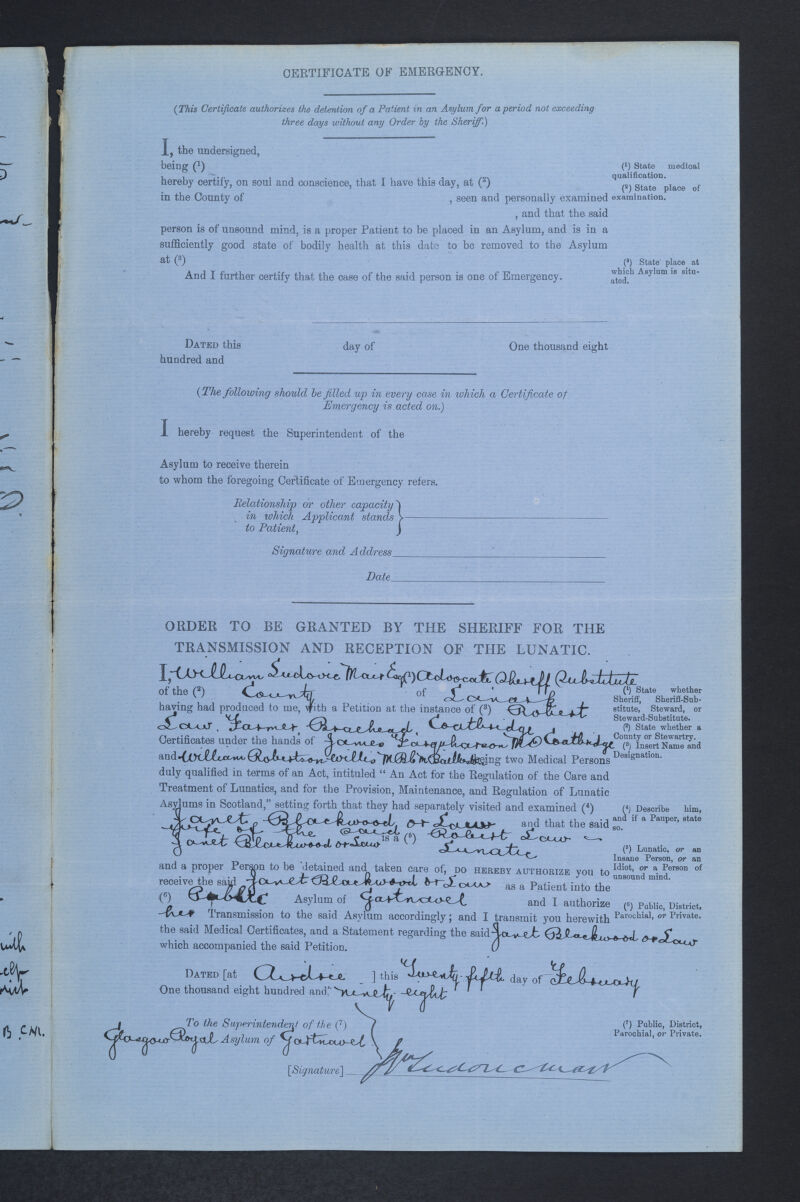 CERTIFICATE OF EMERGENCY.
(This Certificate authorizes the detention of a Patient in an Asylum for a period not exceeding
three days without any Order by the Sheriff.)
I, the undersigned,
being (¹)
hereby certify, on soul and conscience, that I have this day, at (²)
in the County of , seen and personally examined
, and that the said
person is of unsound mind, is a proper Patient to be placed in an Asylum, and is in a
sufficiently good state of bodily health at this date to be removed to the Asylum
at (³)
And I further certify that the case of the said person is one of Emergency.
(¹) State medical
qualification.
(²) State place of
examination.
(³) State place at
which Asylum is situ-
ated.
DATED this day of One thousand eight
hundred and
(The following should be filled up in every case in which a Certificate of
Emergency is acted on.)
I hereby request the Superintendent of the
Asylum to receive therein
to whom the foregoing Certificate of Emergency refers.
Relationship or other capacity
in which Applicant stands
to Patient,
Signature and Address
Date
ORDER TO BE GRANTED BY THE SHERIFF FOR THE
TRANSMISSION AND RECEPTION OF THE LUNATIC.
I, William Ludovic Mair Esq (¹) Advocate, Sheriff Substitute
of the (²) County of Lanark
having had produced to me, with a Petition at the instance of (³) Robert
Law, Farmer, Braehead, Coatbridge
Certificates under the hands of James Farquharson M D Coatbridge
and William Robertson Willis being two Medical Persons
duly qualified in terms of an Act, intituled "An Act for the Regulation of the Care and
Treatment of Lunatics, and for the Provision, Maintenance, and Regulation of Lunatic
Asylums in Scotland," setting forth that they had separately visited and examined (⁴)
Janet Blackwood or Law and that the said
wife of the said Robert Law
Janet Blackwood or Law is a (⁵) Lunatic
and a proper Person to be detained and taken care of, DO HEREBY AUTHORIZE you to
receive the said Janet Blackwood or Law as a Patient into the
(⁶) Public Asylum of Gartnavel and I authorize
her Transmission to the said Asylum accordingly; and I transmit you herewith
the said Medical Certificates, and a Statement regarding the said Janet Blackwood or Law
which accompanied the said Petition.
(¹) State whether
Sheriff, Sheriff-Sub-
stitute, Steward, or
Steward-Substitute.
(²) State whether a
County or Stewartry.
(³) Insert Name and
Designation.
(⁴) Describe him,
and if a Pauper, state
so.
(⁵) Lunatic, or an
Insane Person, or an
Idiot, or a Person of
unsound mind.
(⁶) Public, District,
Parochial, or Private.
DATED [at Airdrie ] this Twenty fifth day of February
One thousand eight hundred and ninety eight
To the Superintendent of the (⁷)
Glasgow Royal Asylum of Gartnavel
(⁷) Public, District,
Parochial, or Private.
[Signature] Wm Ludovic Mair